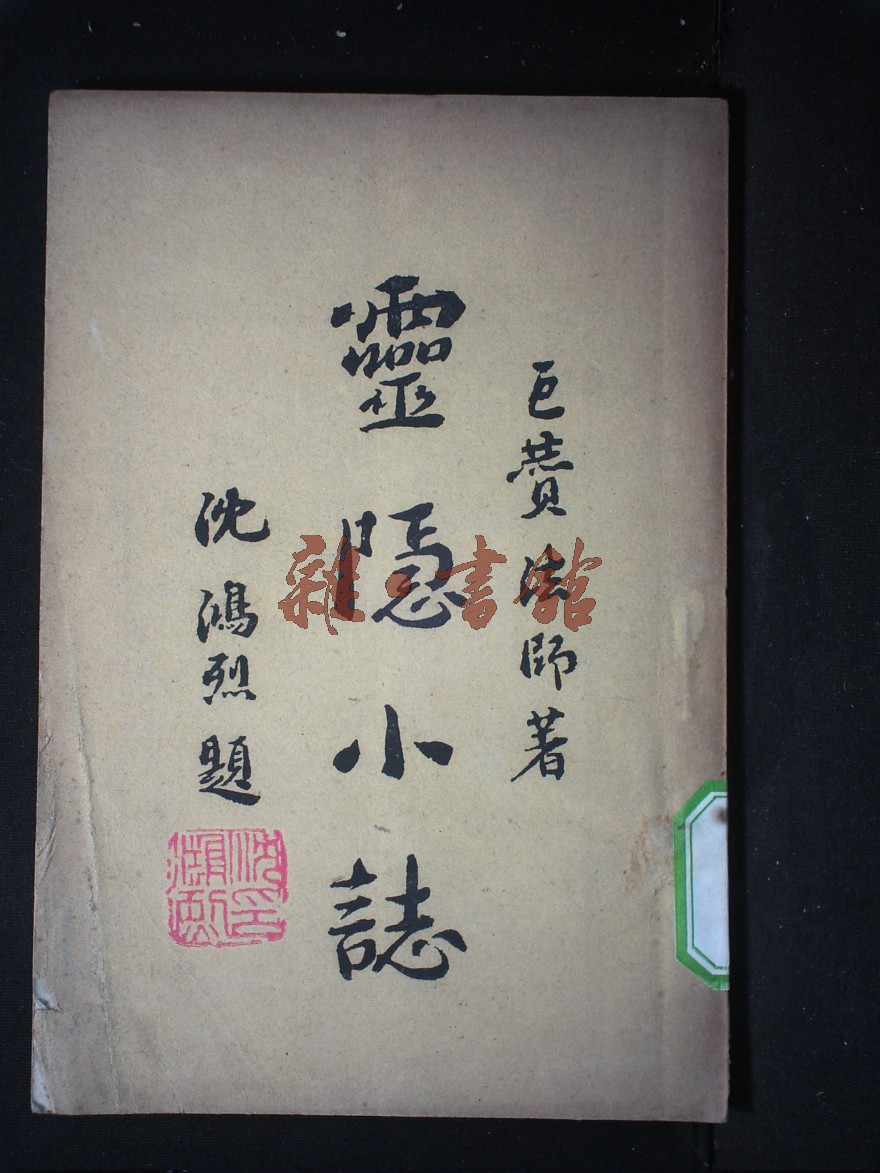 巨贊法師著
靈隱小誌
沈鴻烈題
沈鴻烈印
雜·書館